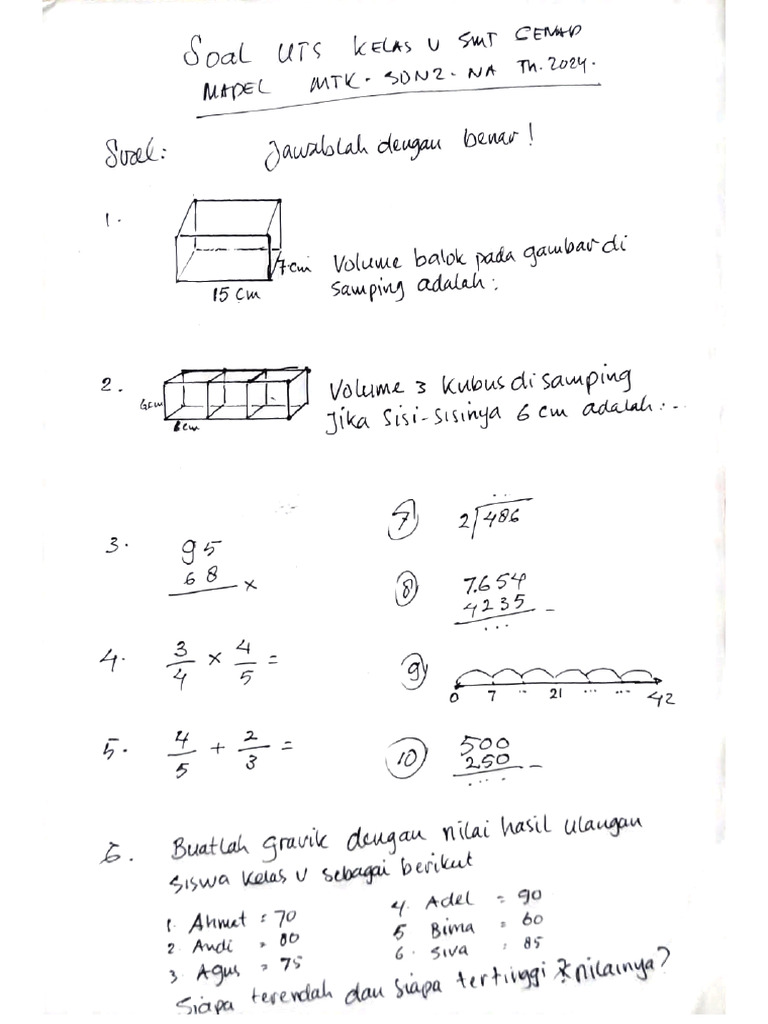 Soal UTS KELAS V SMT GENAP
MAPEL MTK. SDN2. NA Th. 2024.
Soal: Jawablah dengan benar!
1.
7 cm
15 cm
Volume balok pada gambar di
samping adalah:
2.
6cm
6cm
Volume 3 Kubus di samping
Jika Sisi-sisinya 6 cm adalah:..
3.
95
68 x
4. 3/4 x 4/5 =
5. 4/5 + 2/3 =
7 2 486
8
7.654
4235 -
...
9
0 7 .. 21 ... ... 42
10
500
250 -
....
6. Buatlah gravik dengan nilai hasil ulangan
siswa kelas V sebagai berikut
1. Ahmat = 70
2. Andi = 80
3. Agus = 75
4. Adel = 90
5 Bima = 60
6. Siva = 85
Siapa terendah dan siapa tertinggi nilainya?